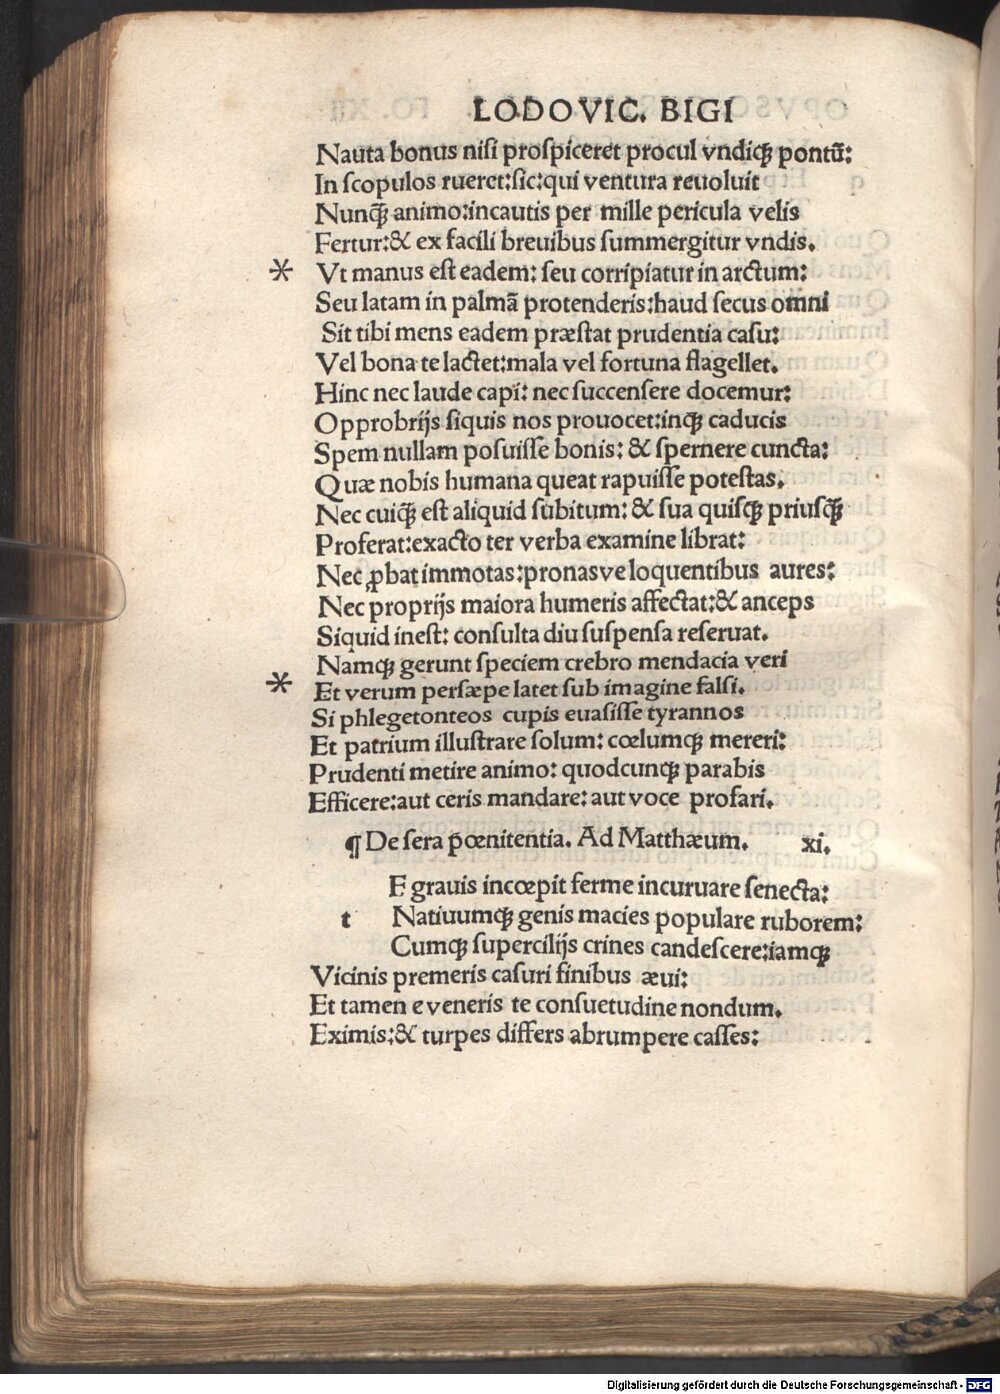 LODOVIC. BIGI
Nauta bonus niſi proſpiceret procul vndiqꝫ pontū:
In ſcopulos rueret:ſic:qui ventura reuoluit
Nunꝙ̄ animo:incautis per mille pericula velis
Fertur:& ex facili breuibus ſummergitur vndis.
* Vt manus eſt eadem: ſeu corripiatur in arctum:
Seu latam in palmā protenderis:haud ſecus omni
Sit tibi mens eadem præſtat prudentia caſu:
Vel bona te lactet:mala vel fortuna flagellet.
Hinc nec laude capi: nec ſuccenſere docemur:
Opprobrijs ſiquis nos prouocet:inqꝫ caducis
Spem nullam poſuiſſe bonis: & ſpernere cuncta:
Quæ nobis humana queat rapuiſſe poteſtas.
Nec cuiqꝫ eſt aliquid ſubitum: & ſua quiſqꝫ priuſꝙ̄
Proferat:exacto ter verba examine librat:
Nec ꝓbat immotas:pronasve loquentibus aures:
Nec proprijs maiora humeris affectat:& anceps
Siquid ineſt: conſulta diu ſuſpenſa reſeruat.
Namqꝫ gerunt ſpeciem crebro mendacia veri
* Et verum perſæpe latet ſub imagine falſi.
Si phlegetonteos cupis euaſiſſe tyrannos
Et patrium illuſtrare ſolum: cœlumqꝫ mereri:
Prudenti metire animo: quodcunqꝫ parabis
Efficere:aut ceris mandare: aut voce profari.
¶ De ſera pœnitentia. Ad Matthæum. xi.
E grauis incœpit ferme incuruare ſenecta:
t Natiuumqꝫ genis macies populare ruborem:
Cumqꝫ ſupercilijs crines candeſcere:iamqꝫ
Vicinis premeris caſuri finibus æui:
Et tamen e veneris te conſuetudine nondum.
Eximis:& turpes differs abrumpere caſſes:
Digitalisierung gefördert durch die Deutsche Forschungsgemeinschaft - DFG